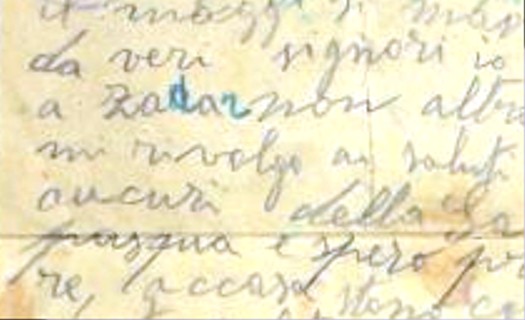 da veri signori io
a Zadar non altr
mi rivolgo ai saluti
aucuri della Sa
pasqua e spero po
re, accasa stano